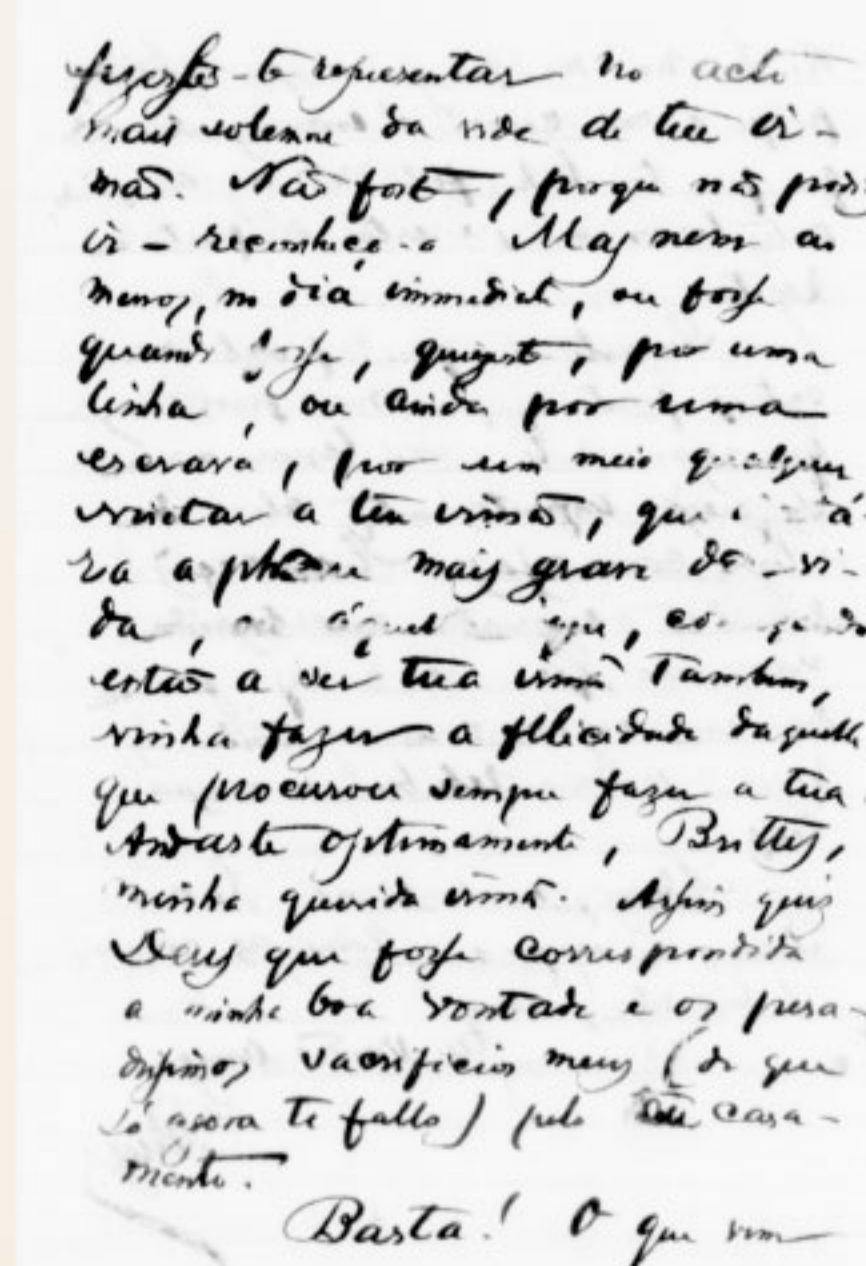 fizeste-te representar no acto
mais solemne da vida de teu ir-
mão. Não foste, porque não pod
ir - reconheço-o Mas nem ao
menos, no dia immediato, ou fosse
quando fosse, quizeste, por uma
linha, ou ainda por uma
escrava, por um meio qualquer
visitar a teu irmão, que
ra a phase mais grave da vi-
da, ou áquella que, começando
então a ser tua irmã tambem,
vinha fazer a felicidade daquelle
que procurou sempre fazer a tua
Andaste optimamente, Brites,
minha querida irmã. Assim quis
Deus que fosse correspondida
a minha boa vontade e os pesa-
dissimos sacrificios meus (de que
só agora te fallo) pelo teu casa-
mento.
Basta! O que vem